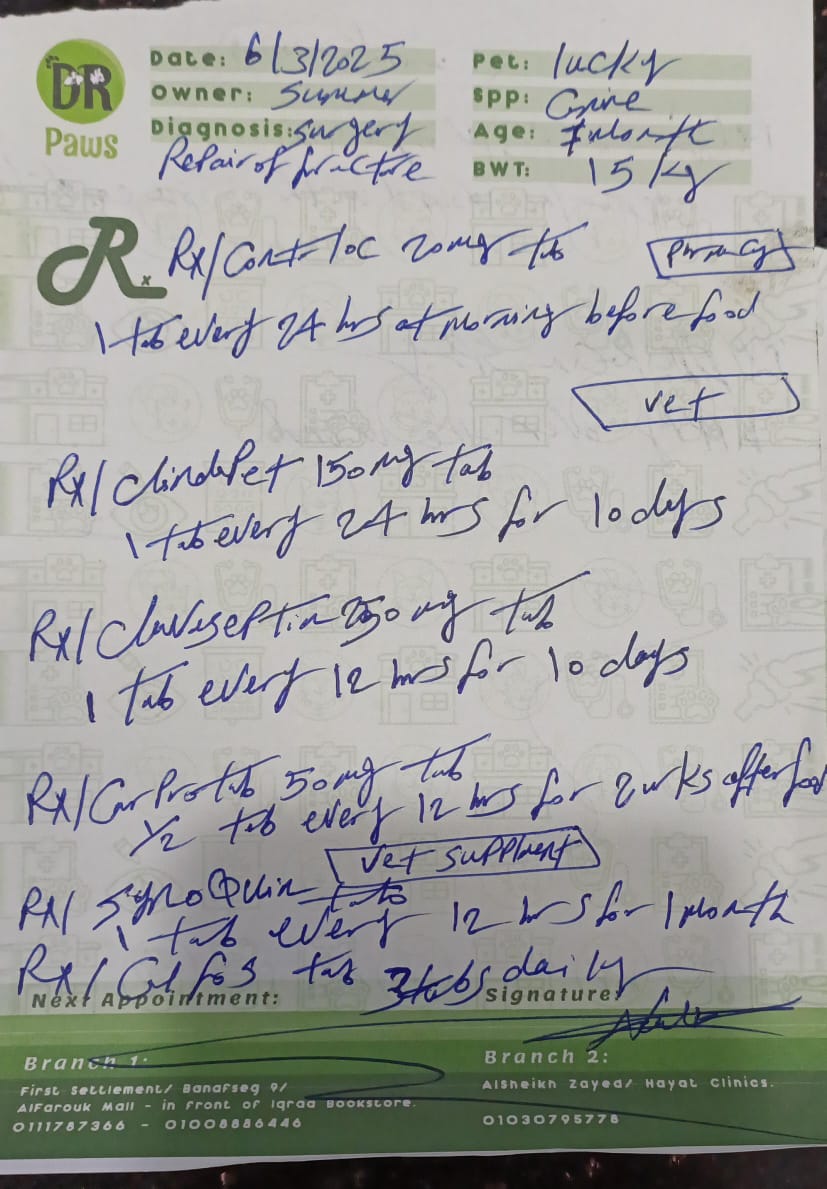 DR Paws
Date: 6/3/2025
Owner: Summer
Diagnosis: surgery
Repair of fructure
Pet: lucky
Spp: Canine
Age: 7 month
BWT: 15 kg
Rx
Rx/ Controloc 20mg tab
Pharmacy
1 tab every 24 hrs at morning before food
vet
Rx/ ClindaPet 150 mg tab
1 tab every 24 hrs for 10 days
Rx/ Clavaseptin 250 mg tab
1 tab every 12 hrs for 10 days
Rx/ CarProtab 50mg tab
1/2 tab every 12 hrs for 2 wks after food
Vet Supplment
Rx/ SynoQuin
1 tab every 12 hrs for 1 month
Rx/ Calfos tab 3 tabs daily
Next Appointment:
Signature:
Branch 1:
First Settlement/ Banafseg 9/
AlFarouk Mall - in front of Iqraa Bookstore.
0111787366 - 01008886446
Branch 2:
AlSheikh Zayed/ Hayat Clinics.
01030795778